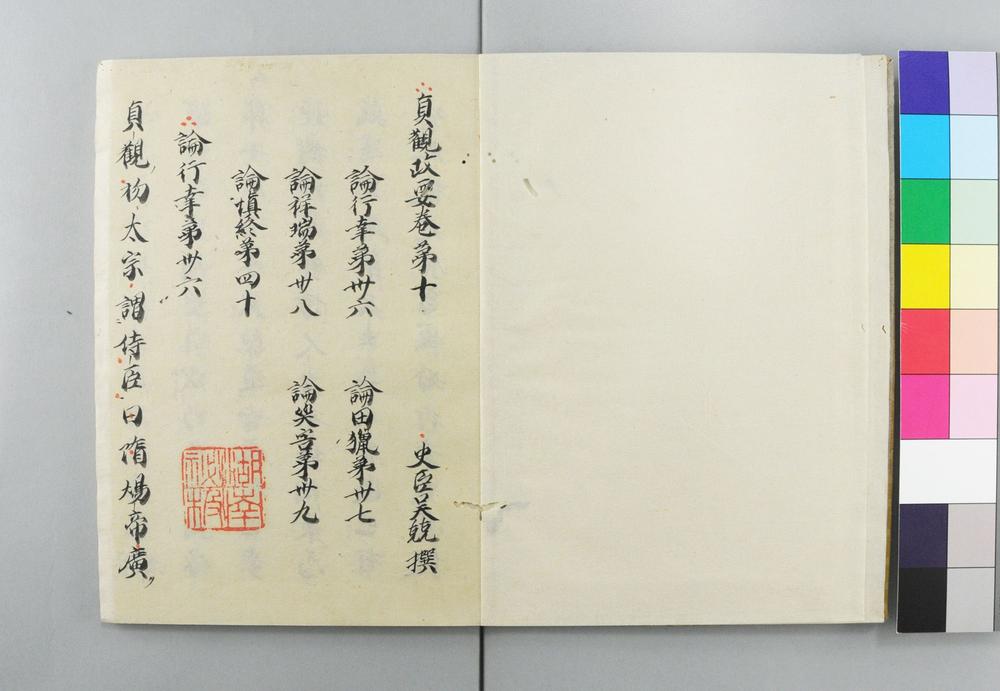 貞觀政要卷第十 史臣吴兢撰
論行幸第卅六 論田獵第卅七
論祥瑞第卅八 論災害第卅九
論慎終第四十
論行幸第卅六
貞觀初太宗謂侍臣曰隋煬帝廣